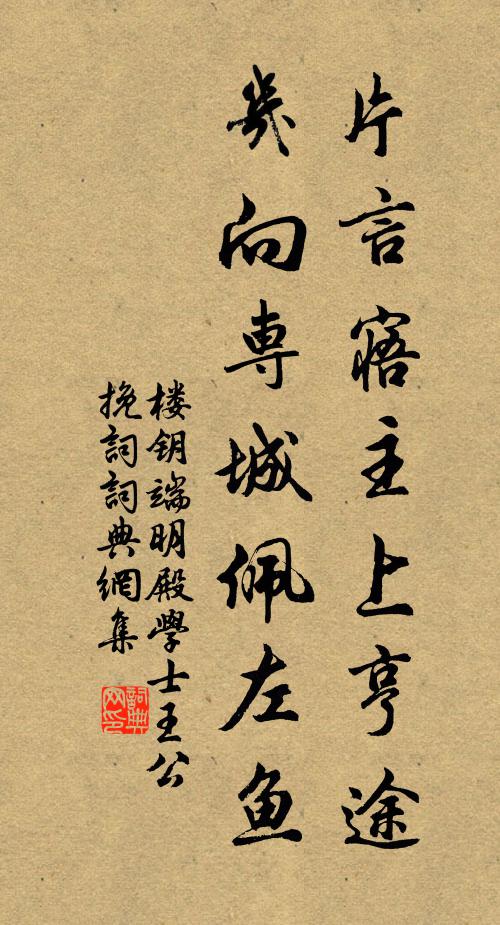 片言寤主上亨途
几向専城佩左鱼
楼钥端明殿學士王公
挽詞詞典網集
詞典
网印